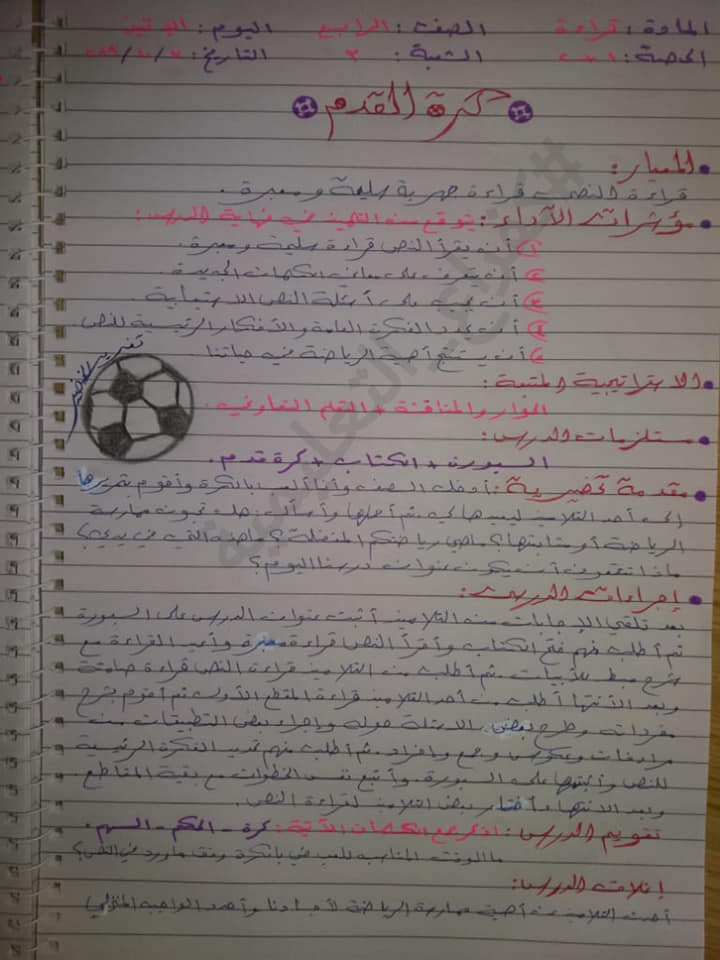 المادة: قراءة الصف: الرابع اليوم: الإثنين
الحصة: الشعبة: ٣ التاريخ:
كرة القدم
المعيار:
قراءة النص قراءة جهرية سليمة ومعبرة.
مؤشرات الأداء: يتوقع من التلميذ في نهاية الدرس:
١ أن يقرأ النص قراءة سليمة ومعبرة.
٢ أن يتعرف على معاني الكلمات الجديدة.
٣ أن يجيب على أسئلة النص الاستيعابية.
٤ أن يحدد الفكرة العامة والأفكار الرئيسية للنص
٥ أن يستنتج أهمية الرياضة في حياتنا.
الاستراتيجية المتبعة:
الحوار والمناقشة + التعلم التعاوني.
مستلزمات الدرس:
السبورة + الكتاب + كرة قدم.
مقدمة تحضيرية: أدخل الصف وأنا ألعب بالكرة وأقوم بتمريرها
إلى أحد التلاميذ ليعيدها لي ثم أحملها وأسأل: هل تحبون ممارسة
الرياضة أو متابعتها؟ ماهي رياضتكم المفضلة؟ ماهذه التي في يدي؟
ماذا تتوقعون أن يكون عنوان درسنا اليوم؟
إجراءات الدرس:
بعد تلقي الإجابات من التلاميذ أثبت عنوان الدرس على السبورة
ثم أطلب منهم فتح الكتاب وأقرأ النص قراءة معبرة وأعيد القراءة مع
شرح مبسط للأبيات. ثم أطلب من التلاميذ قراءة النص قراءة صامتة
وبعد الانتهاء أطلب من أحد التلاميذ قراءة المقطع الأول ثم أقوم بشرح
مفرداته وطرح بعض الاسئلة حوله وإجراء بعض التطبيقات من
مرادفات وعكوس وجمع وإفراد. ثم أطلب منهم تحديد الفكرة الرئيسية
للنص وأثبتها على السبورة. وأتبع نفس الخطوات مع بقية المقاطع
وبعد الانتهاء أختار بعض التلاميذ لقراءة النص.
تقويم الدرس: اذكر جمع الكلمات الآتية: كرة - الحكم - السهم.
ما الوقت المناسب للعب في بالكرة وفق ماورد في النص؟
إغلاق الدرس:
أحدث التلاميذ عن أهمية ممارسة الرياضة لأجسادنا وأحدد الواجب المنزلي
#
التعليمية